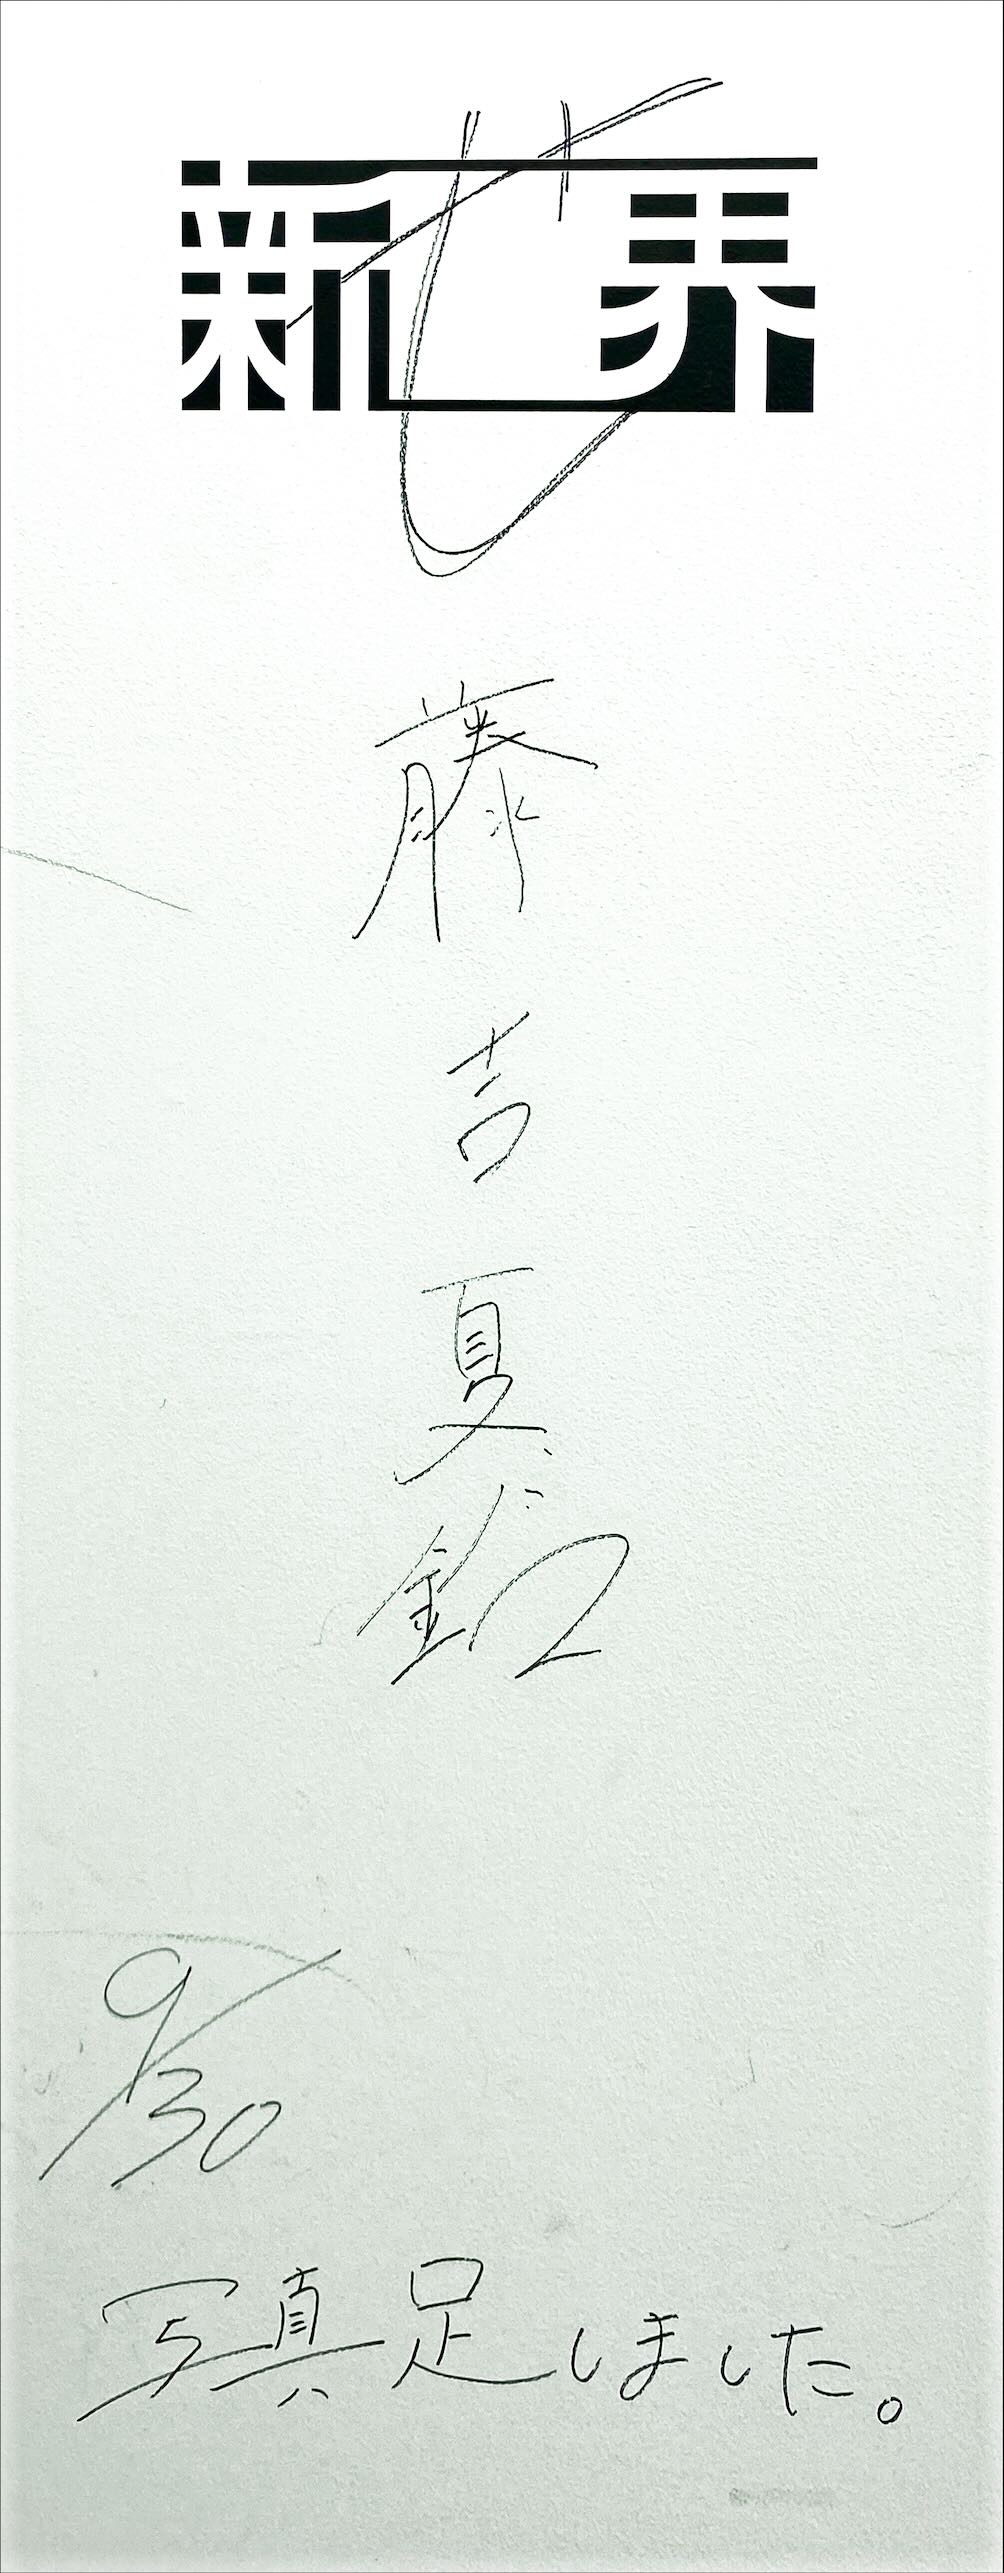 新せ界
藤吉夏鈴
9/30
写真足しました。